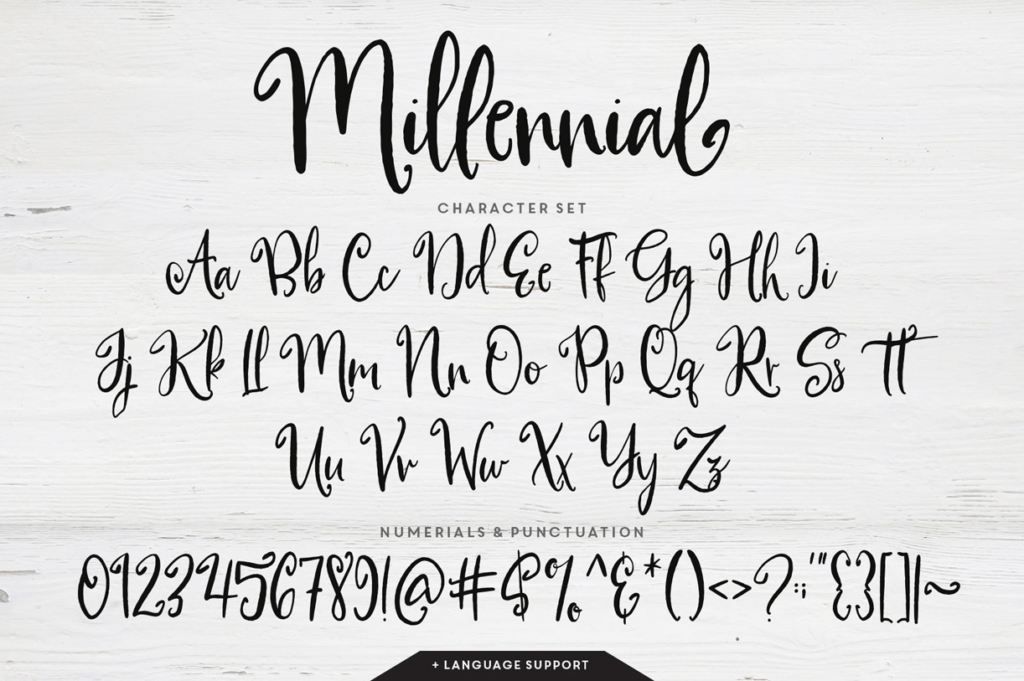 Millennial
CHARACTER SET
Aa Bb Cc Dd Ee Ff Gg Hh Ii
Jj Kk Ll Mm Nn Oo Pp Qq Rr Ss Tt
Uu Vv Ww Xx Yy Zz
NUMERIALS & PUNCTUATION
0123456789!@#$%^&*()<>?:;'"{}[]|~
+ LANGUAGE SUPPORT